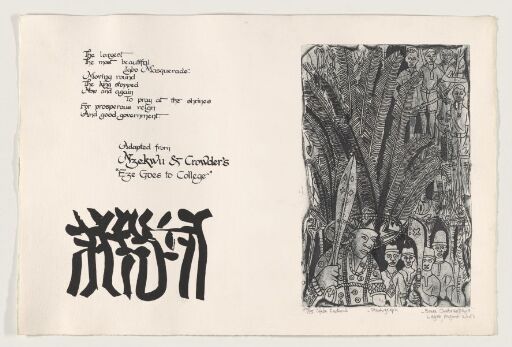 The largest
The most beautiful
Igbo Masquerade:
Moving round
The king stopped
Now and again
To pray at the shrines
For prosperous reign
And good government
Adapted from
Nzekwu & Crowder's
"Eze Goes to College"